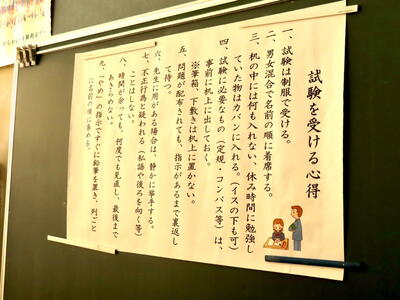 試験を受ける心得
一、試験は制服で受ける。
二、男女混合で名前の順に着席する。
三、机の中には何も入れない、休み時間に勉強し
ていた物はカバンに入れる。（イスの下も可）
四、試験に必要なもの（定規・コンパス等）は、
事前に机上に出しておく。
※筆箱、下敷きは机上に置かない。
五、問題が配布されても、指示があるまで裏返し
て待つ。
六、先生に用がある場合は、静かに挙手する。
七、不正行為と疑われる（私語や後ろを向く等）
ことはしない。
八、時間が余っても、何度でも見直し、最後まで
あきらめない。
九、「やめ」の指示ですぐに鉛筆を置き、列ごと
に名前の順に集める。